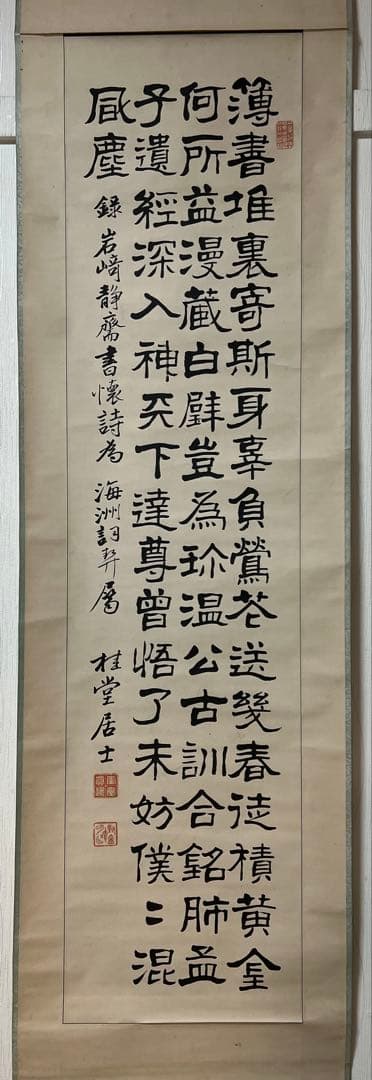 簿書堆裏寄斯身辜負鶯花送幾春徒積黄金
何所益漫蔵白璧豈為珎温公古訓合銘肺孟
子遺經深入神天下達尊曾悟了未妨僕〻混
風塵
録岩﨑静齋書懐詩為 海洲詞契属 桂堂居士